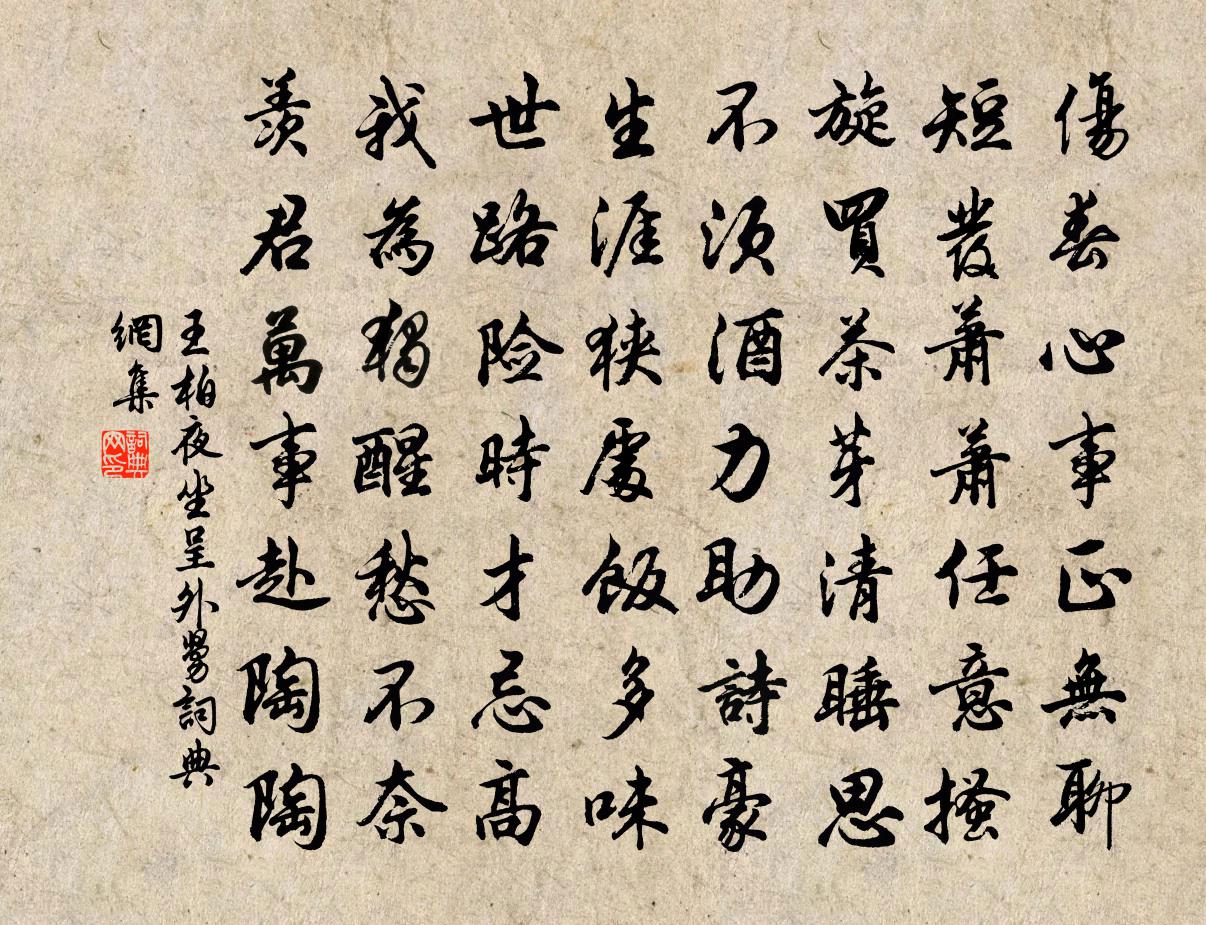 傷春心事正無聊
短發蕭蕭任意搔
旋買茶芽清睡思
不須酒力助詩豪
生涯狹處飯多味
世路险時才忌高
我為獨醒愁不奈
羨君萬事赴陶陶
王柏夜坐呈外舅詞典
網集
詞典
网印